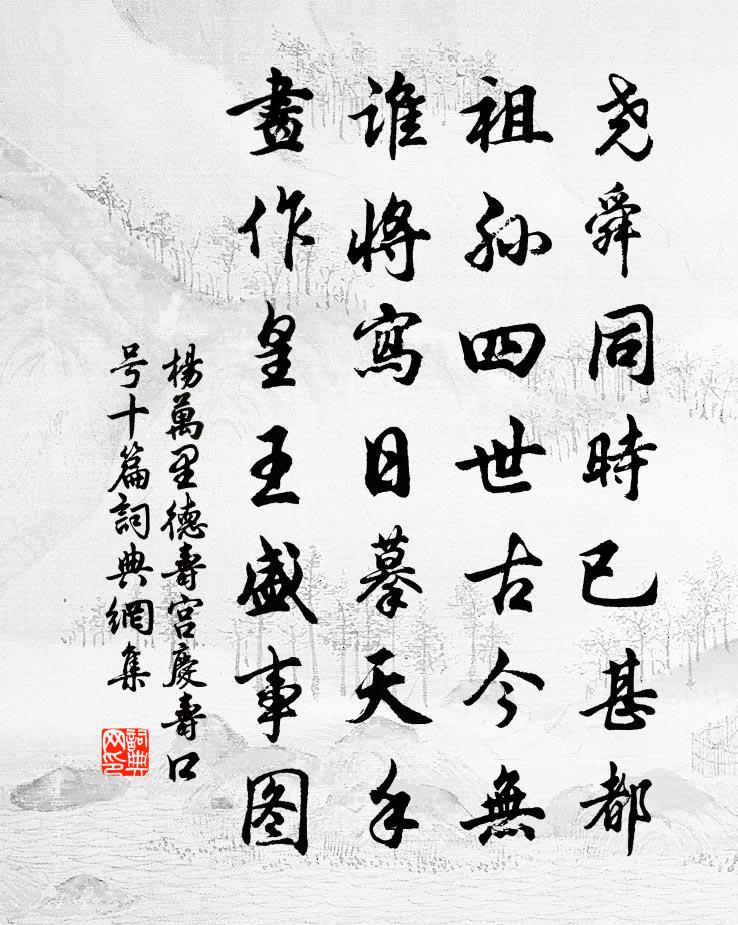 尧舜同時已甚都
祖孙四世古今無
誰將寫日摹天手
畫作皇王盛事图
楊萬里德壽宮慶壽口
号十篇詞典網集
詞典网印